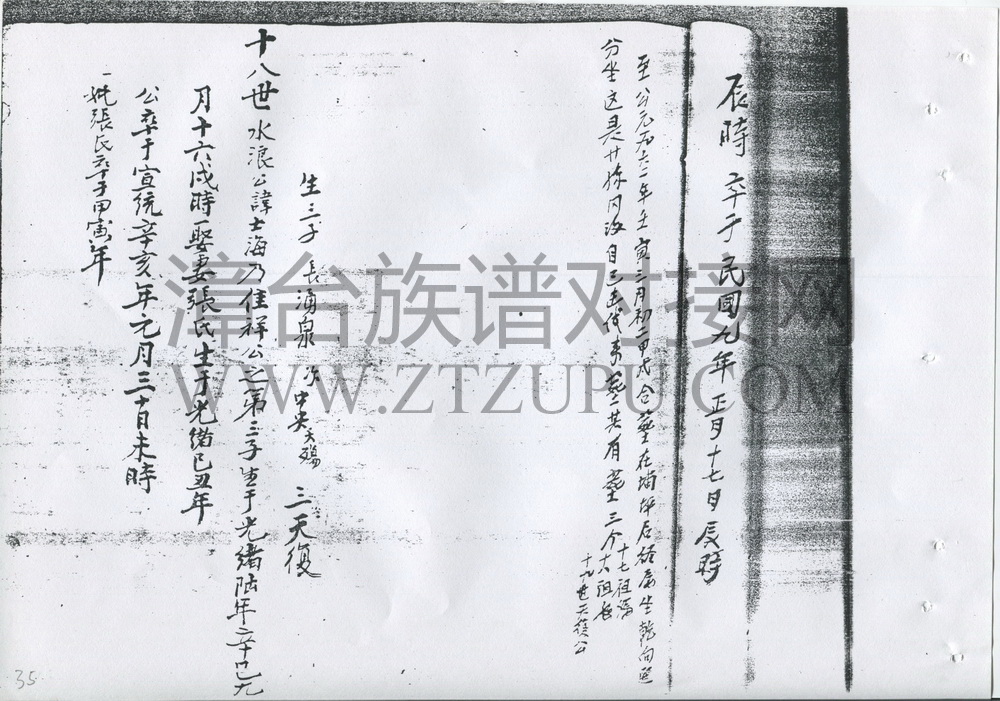 辰時 卒于民國九年正月十七日辰時
至公元一九六二年壬寅三月初二甲戌合塟在埔坪后 坐乾向
分坐这是 自己去 塟共有塟三个
十七祖
十六祖
十九世天 公
生三子 長湧泉 次中央夭殤 三天復
十八世 水浪公諱士海乃佳祥公之第三子生于光緒陆年辛巳九
月十六戌時一娶妻張氏生于光緒己丑年
公卒于宣統辛亥年元月三十日未時
一妣張氏卒于甲寅年
35
漳台族谱对接网
WWW.ZTZUPU.COM